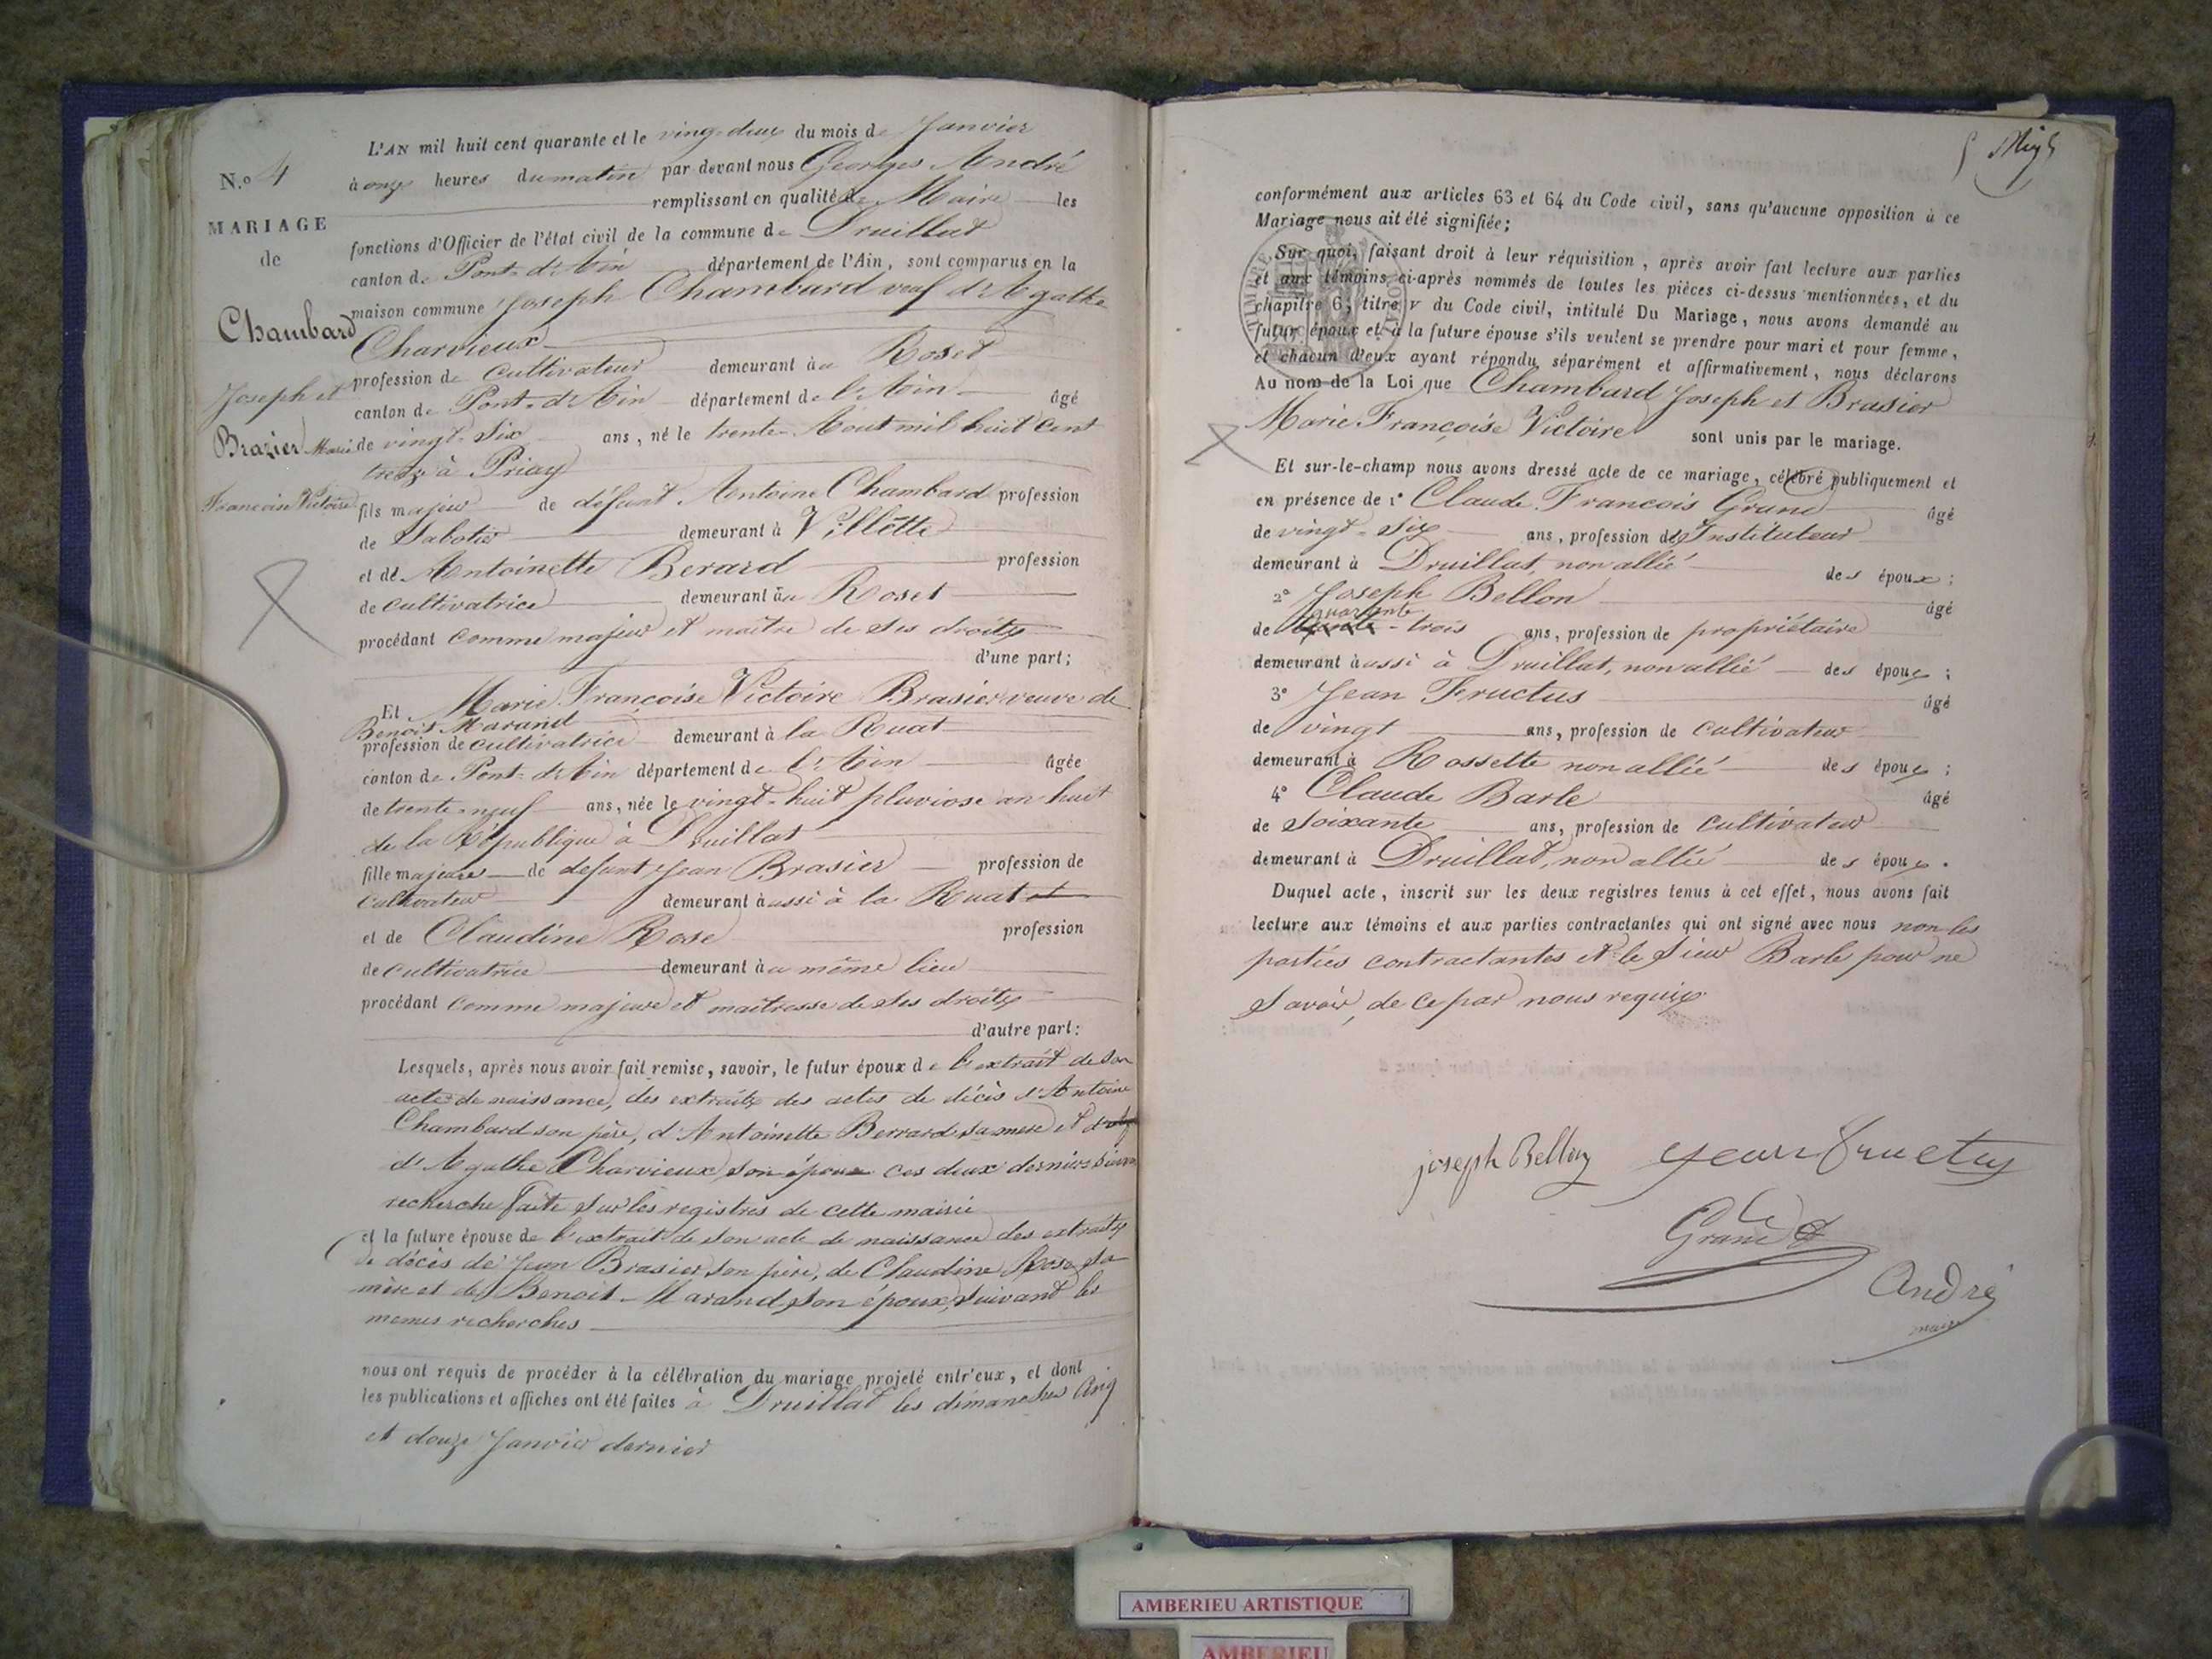 N.o 4
MARIAGE
de
Chambard
Joseph et
Brazier Marie
Francoise Victoire
L'AN mil huit cent quarante et le vingt-deux du mois de Janvier
à onze heures du matin par devant nous Georges André
remplissant en qualité de Maire les
fonctions d'Officier de l'état civil de la commune de Druillat
canton de Pont-d'Ain département de l'Ain, sont comparus en la
maison commune Joseph Chambard veuf d'Agathe
Charvieux
profession de cultivateur demeurant au Roset
canton de Pont-d'Ain département de l'Ain âgé
de vingt-six ans, né le trente Aout mil huit cent
treize à Priay
fils majeur de défunt Antoine Chambard profession
de Sabotier demeurant à Villette
et de Antoinette Berard profession
de cultivatrice demeurant au Roset
procédant comme majeur et maître de ses droits
d'une part;
Et Marie Françoise Victoire Brasier veuve de
Benoit Marand
profession de cultivatrice demeurant à la Ruat
canton de Pont-d'Ain département de l'Ain âgée
de trente-neuf ans, née le vingt-huit pluviose an huit
de la République à Druillat
fille majeure de defunt Jean Brasier profession de
cultivateur demeurant aussi à la Ruat et
et de Claudine Rose profession
de cultivatrice demeurant au même lieu
procédant comme majeure et maîtresse de ses droits
d'autre part:
Lesquels, après nous avoir fait remise, savoir, le futur époux de l'extrait de son
acte de naissance, des extraits des actes de décès d'Antoine
Chambard son père, d'Antoinette Berrard sa mere et
d'Agathe Charvieux son épouse ces deux derniers
recherche faite sur les registres de cette mairie
et la future épouse de l'extrait de son acte de naissance des extraits
de décès de Jean Brasier son père, de Claudine Rose sa
mère et de Benoit Marand son époux, suivant les
memes recherches
nous ont requis de procéder à la célébration du mariage projeté entr'eux, et dont
les publications et affiches ont été faites à Druillat les dimanches cinq
et douze Janvier dernier
conformément aux articles 63 et 64 du Code civil, sans qu'aucune opposition à ce
Mariage nous ait été signifiée;
Sur quoi, faisant droit à leur réquisition, après avoir fait lecture aux parties
et aux témoins ci-après nommés de toutes les pièces ci-dessus mentionnées, et du
chapitre 6, titre v du Code civil, intitulé Du Mariage, nous avons demandé au
futur époux et à la future épouse s'ils veulent se prendre pour mari et pour femme,
et chacun d'eux ayant répondu séparément et affirmativement, nous déclarons
Au nom de la Loi que Chambard Joseph et Brasier
Marie Françoise Victoire sont unis par le mariage.
Et sur-le-champ nous avons dressé acte de ce mariage, célébré publiquement et
en présence de 1° Claude François Grand âgé
de vingt-six ans, profession d'Instituteur
demeurant à Druillat, non allié des époux;
2° Joseph Bellon âgé
quarante
de trente-trois ans, profession de propriétaire
demeurant aussi à Druillat, non allié des époux;
3° Jean Fructus âgé
de vingt ans, profession de cultivateur
demeurant à Rossette non allié des époux;
4° Claude Barle âgé
de soixante ans, profession de cultivateur
demeurant à Druillat, non allié des époux.
Duquel acte, inscrit sur les deux registres tenus à cet effet, nous avons fait
lecture aux témoins et aux parties contractantes qui ont signé avec nous non les
parties contractantes et le sieur Barle pour ne
savoir, de ce par nous requis
joseph Bellon jean fructus
Grand
André
maire
AMBERIEU ARTISTIQUE
AMBERIEU